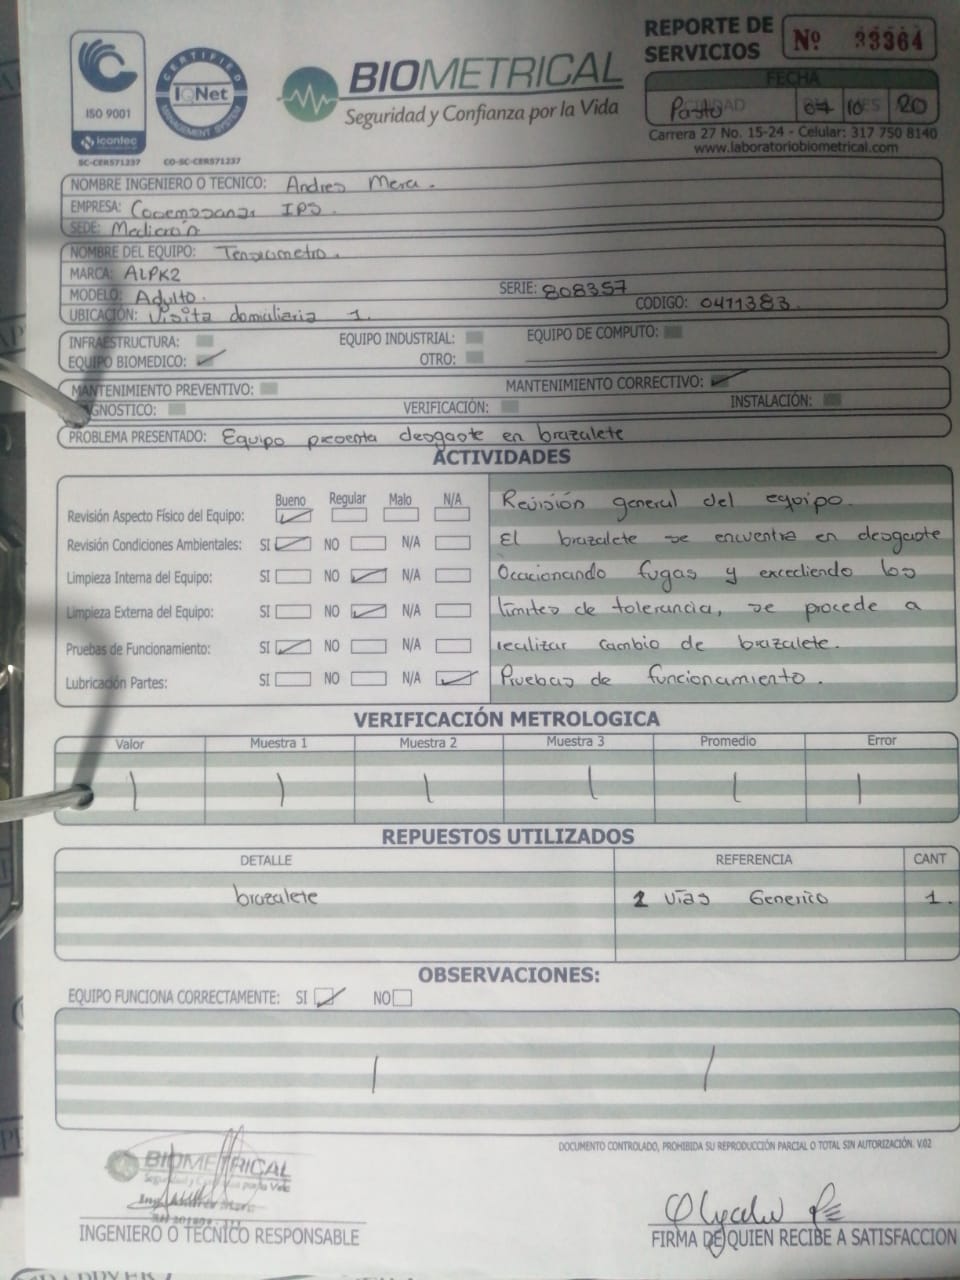 REPORTE DE SERVICIOS Nº 33364
ISO 9001
icontec
SC-CER571237
CERTIFIED
IQNet
MANAGEMENT SYSTEM
CO-SC-CER571237
BIOMETRICAL
Seguridad y Confianza por la Vida
FECHA
Pasto 07 10 20
Carrera 27 No. 15-24 - Celular: 317 750 8140
www.laboratoriobiometrical.com
NOMBRE INGENIERO O TECNICO: Andres Mera.
EMPRESA: IPS.
SEDE: Medicron
NOMBRE DEL EQUIPO: Tensiometro.
MARCA: ALPK2
MODELO: Adulto. SERIE: 808357
UBICACIÓN: Visita domiciliaria 1. CODIGO: 0411383.
INFRAESTRUCTURA: EQUIPO INDUSTRIAL: EQUIPO DE COMPUTO:
EQUIPO BIOMEDICO: OTRO:
MANTENIMIENTO PREVENTIVO: MANTENIMIENTO CORRECTIVO:
AGNOSTICO: VERIFICACIÓN: INSTALACIÓN:
PROBLEMA PRESENTADO: Equipo presenta desgaste en brazalete
ACTIVIDADES
Bueno Regular Malo N/A
Revisión Aspecto Físico del Equipo:
Revisión Condiciones Ambientales: SI NO N/A
Limpieza Interna del Equipo: SI NO N/A
Limpieza Externa del Equipo: SI NO N/A
Pruebas de Funcionamiento: SI NO N/A
Lubricación Partes: SI NO N/A
Revisión general del equipo.
El brazalete se encuentra en desgaste
Ocacionando fugas y excediendo los
límites de tolerancia, se procede a
realizar cambio de brazalete.
Pruebas de funcionamiento.
VERIFICACIÓN METROLOGICA
Valor Muestra 1 Muestra 2 Muestra 3 Promedio Error
REPUESTOS UTILIZADOS
DETALLE REFERENCIA CANT
brazalete 2 Vias Generico 1.
OBSERVACIONES:
EQUIPO FUNCIONA CORRECTAMENTE: SI NO
DOCUMENTO CONTROLADO, PROHIBIDA SU REPRODUCCIÓN PARCIAL O TOTAL SIN AUTORIZACIÓN. V.02
BIOMETRICAL
Seguridad y Confianza por la Vida
INGENIERO O TECNICO RESPONSABLE
FIRMA DE QUIEN RECIBE A SATISFACCION